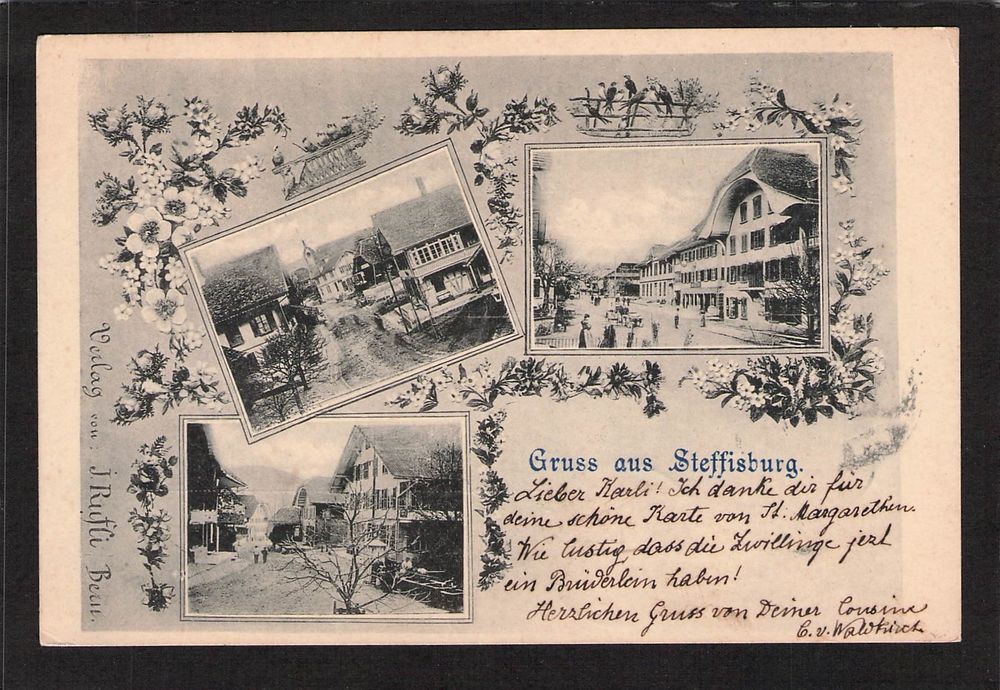 Verlag von: J Rufli Bern.
Gruss aus Steffisburg.
Lieber Karli! Ich danke dir für
deine schöne Karte von St. Margarethen.
Wie lustig dass die Zwillinge jezt
ein Brüderlein haben!
Herzlichen Gruss von Deiner Cousine
C. v. Waldkirch